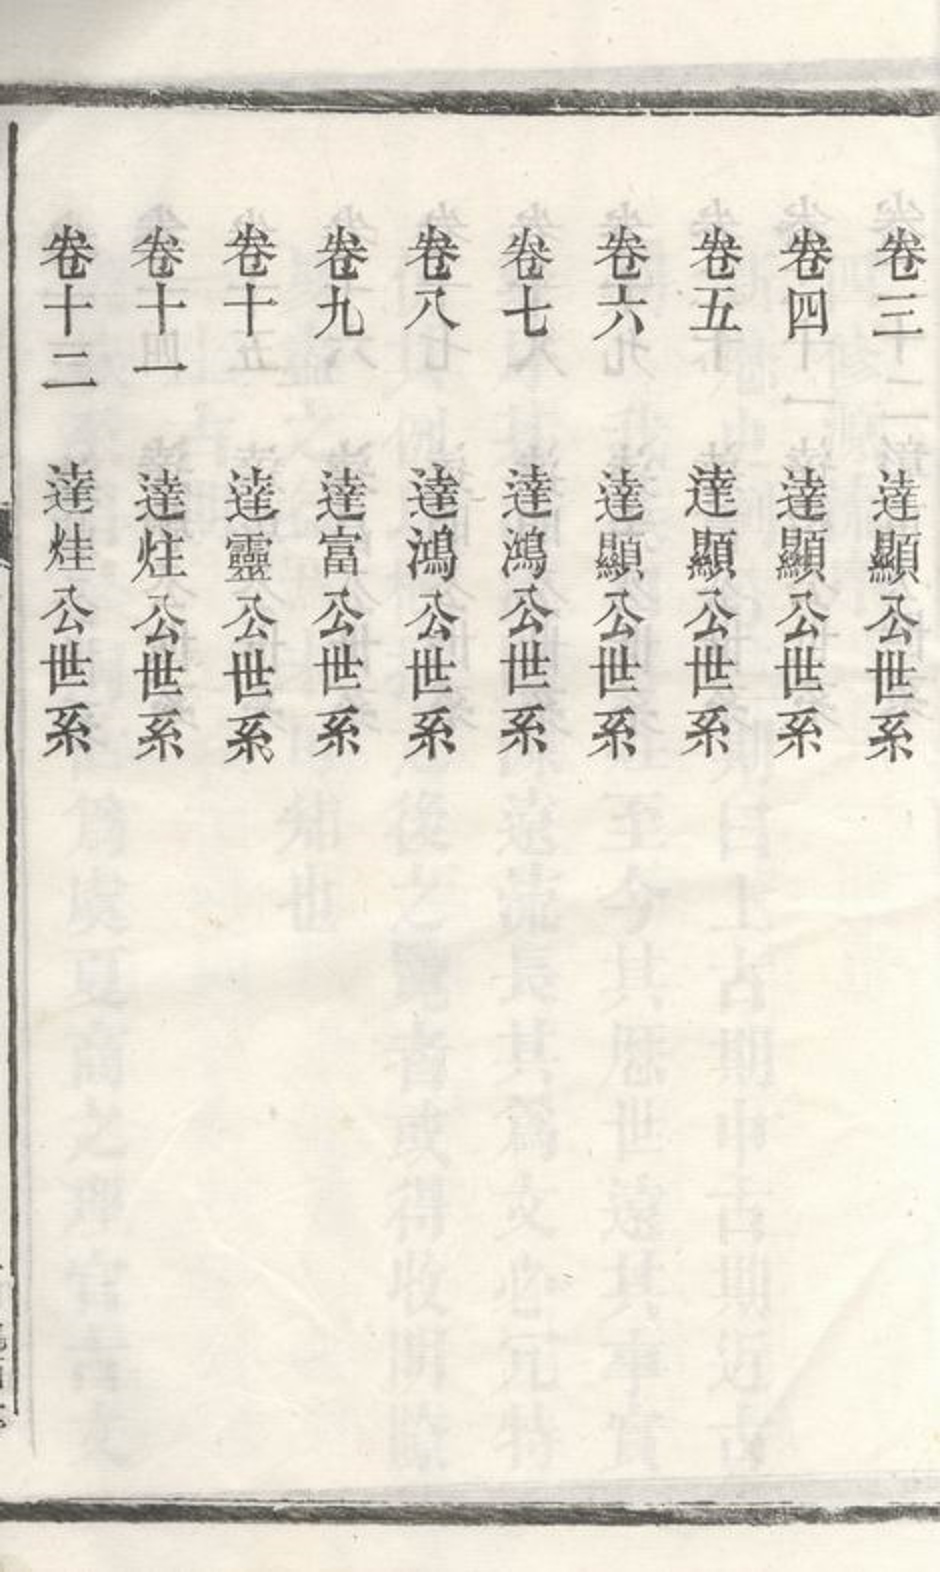 卷三 達顯公世系
卷四 達顯公世系
卷五 達顯公世系
卷六 達顯公世系
卷七 達鴻公世系
卷八 達鴻公世系
卷九 達富公世系
卷十 達靈公世系
卷十一 達炷公世系
卷十二 達烓公世系